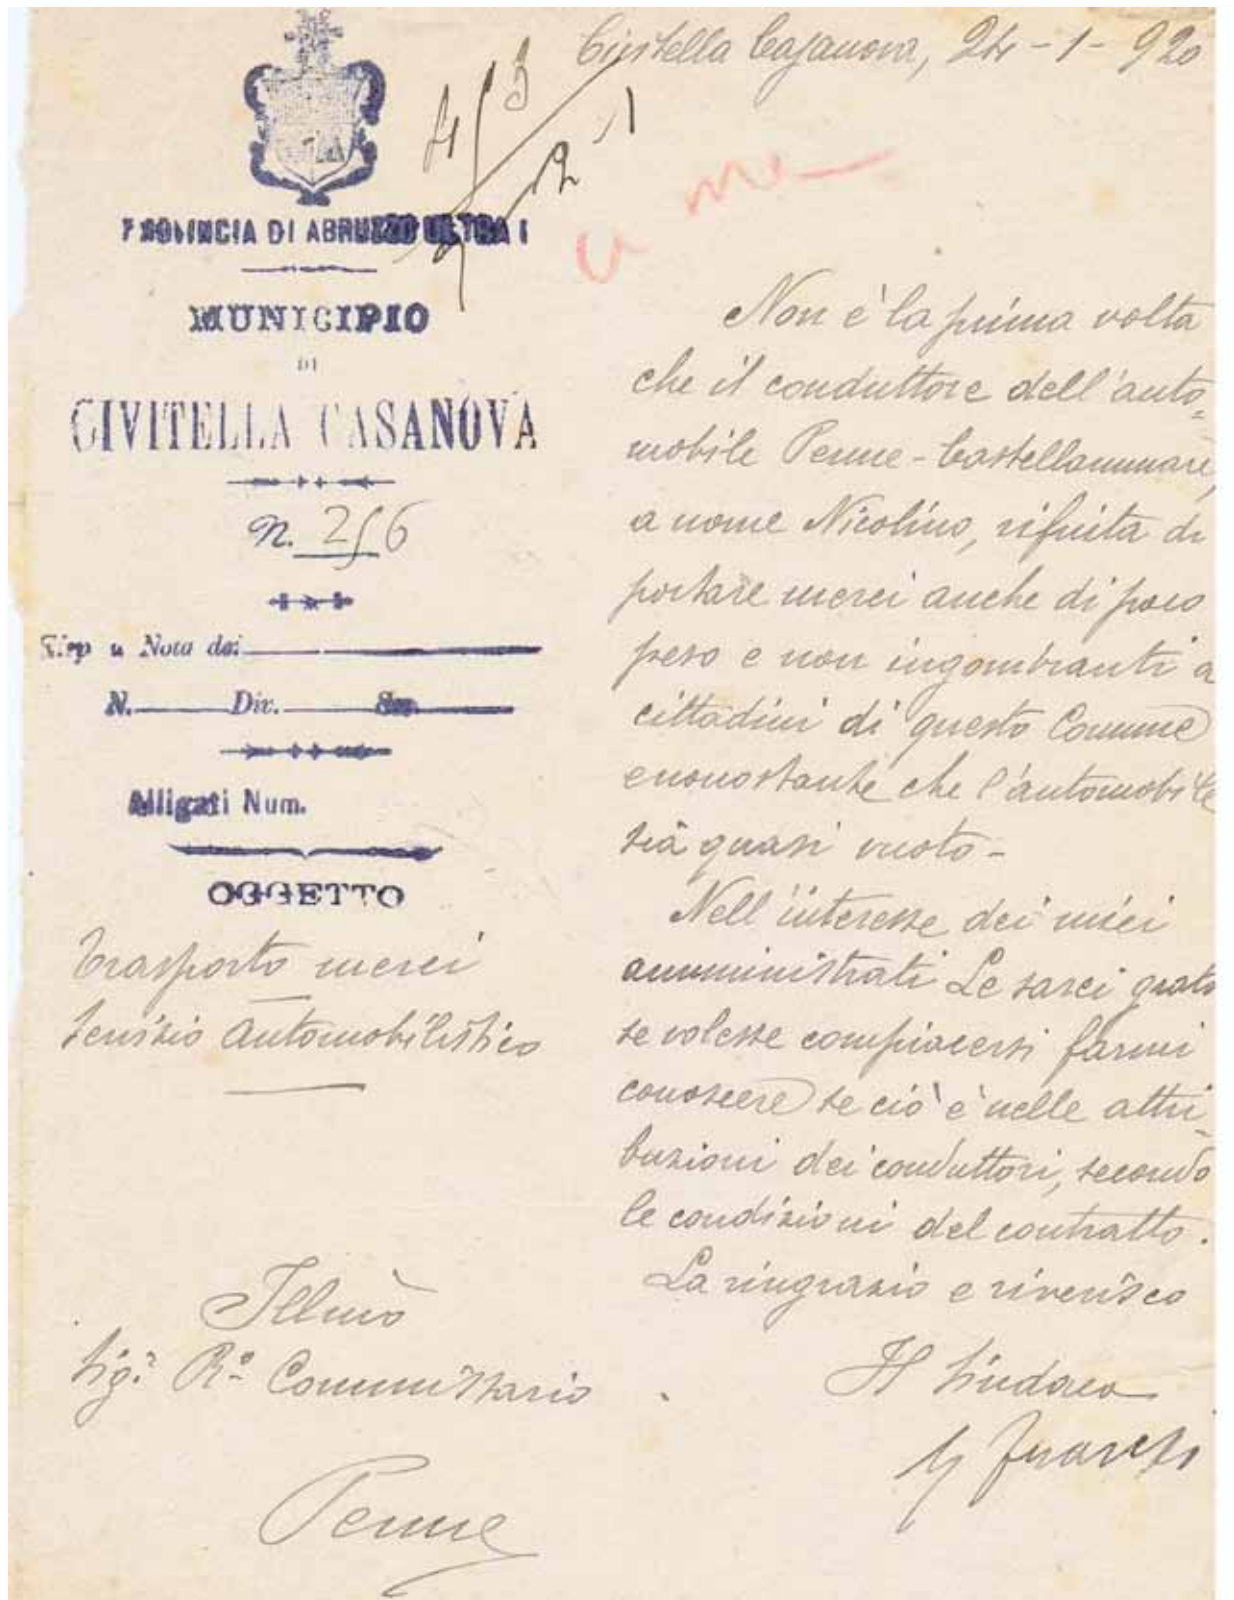 Civitella Casanova, 24-1-920
PROVINCIA DI ABRUZZO ULTRA I
MUNICIPIO
DI
CIVITELLA CASANOVA
N. 256
Risp. a Nota del
N. Div. Sez.
Alligati Num.
OGGETTO
Trasporto merci
Servizio Automobilistico
Illmò
Sigr. R.º Commissario
Penne
Non è la prima volta
che il conduttore dell'auto=
mobile Penne-Castellammare,
a nome Nicolino, rifiuta di
portare merci anche di poco
peso e non ingombranti a
cittadini di questo Comune
enonostante che l'automobile
sia quasi vuoto-
Nell'interesse dei miei
amministrati Le sarei grato
se volesse compiacersi farmi
conoscere se ciò è nelle attri-
buzioni dei conduttori, secondo
le condizioni del contratto.
La ringrazio e riverisco
Il Sindaco